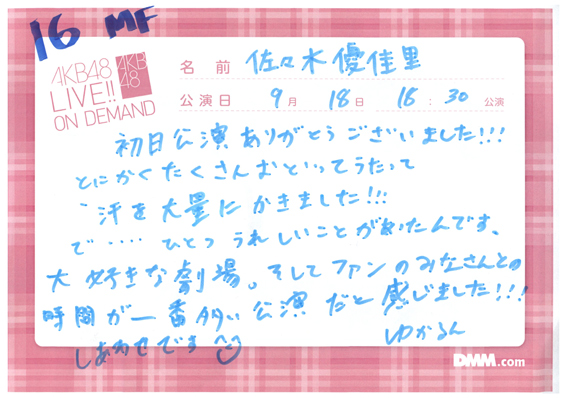 16 MF
AKB48
LIVE!!
ON DEMAND
AKB
48
名前 佐々木優佳里
公演日 9月 18日 18:30 公演
初日公演ありがとうございました!!!
とにかくたくさんおどってうたって
汗を大量にかきました!!!
で‥‥ ひとつうれしいことがあったんです、
大好きな劇場。そしてファンのみなさんとの
時間が一番多い公演だと感じました!!!
しあわせです
ゆかるん
DMM.com